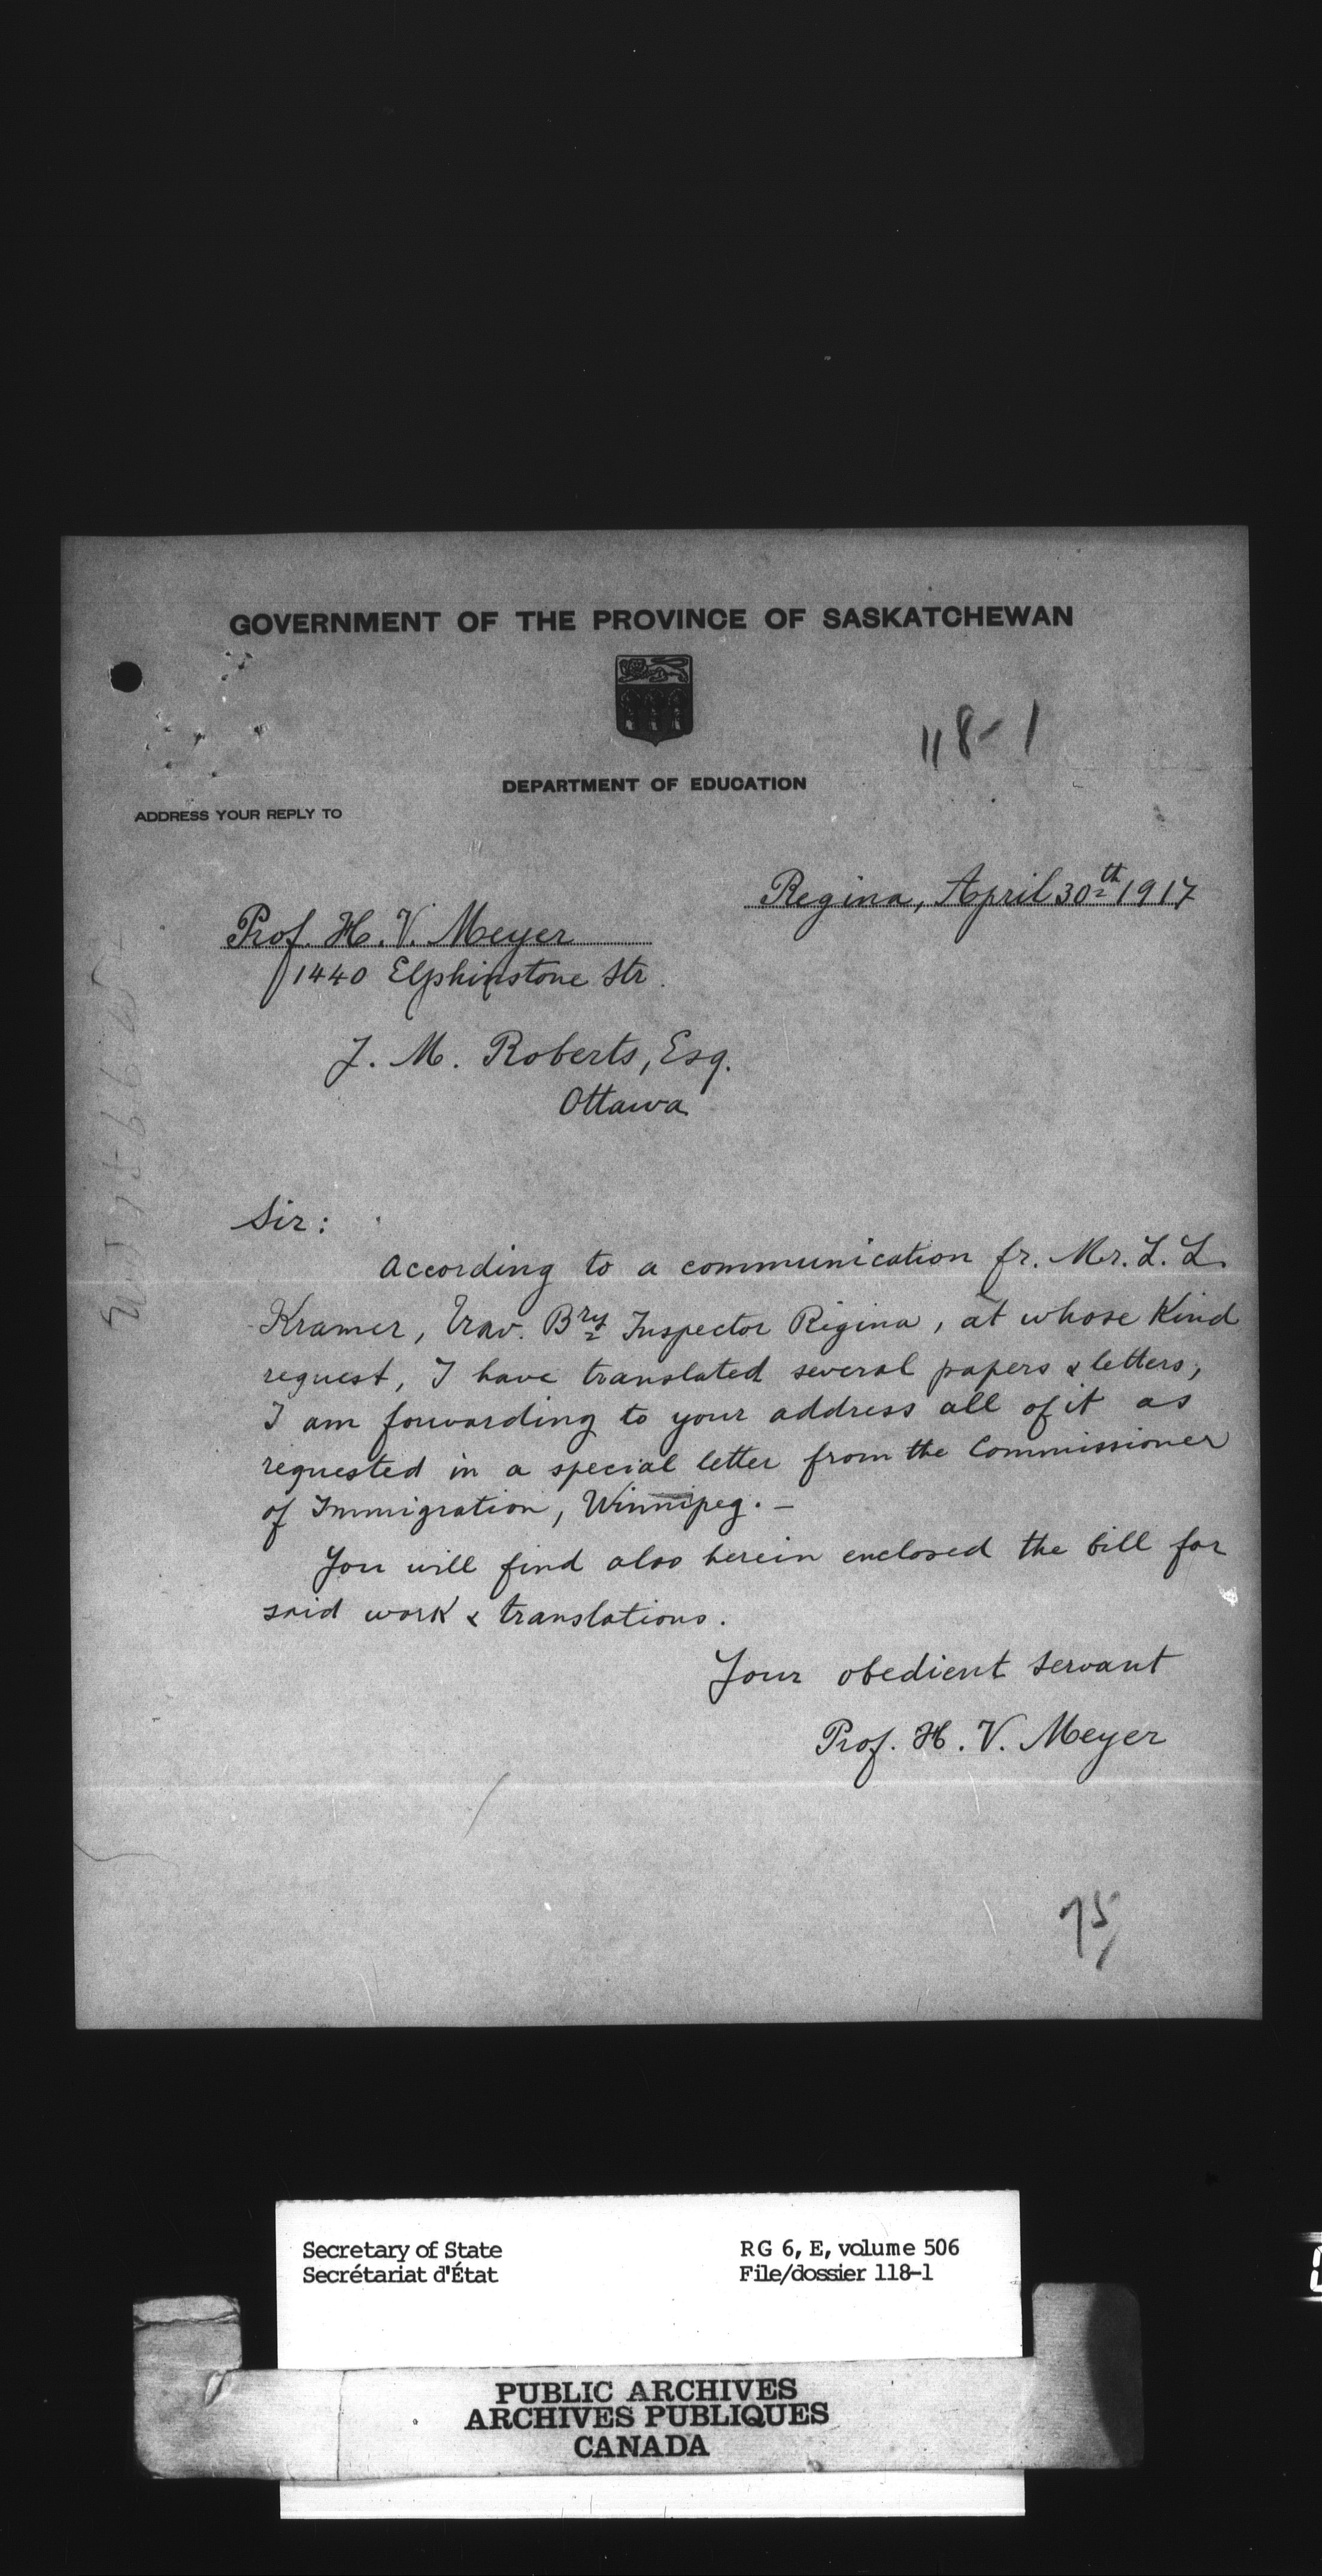 GOVERNMENT OF THE PROVINCE OF SASKATCHEWAN
118-1
DEPARTMENT OF EDUCATION
ADDRESS YOUR REPLY TO
Regina, April 30th 1917
Prof. H. V. Meyer
1440 Elphinstone Str.
J. M. Roberts, Esq.
Ottawa
Sir:
According to a communication fr. Mr. L. L.
Kramer, Trav. Bry Inspector Regina, at whose Kind
request, I have translated several papers & letters,
I am forwarding to your address all of it as
requested in a special letter from the Commissioner
of Immigration, Winnipeg. –
You will find also herein enclosed the bill for
said work & translations.
Your obedient servant
Prof. H. V. Meyer
75
Secretary of State
Secrétariat d'État
RG 6, E, volume 506
File/dossier 118-1
PUBLIC ARCHIVES
ARCHIVES PUBLIQUES
CANADA